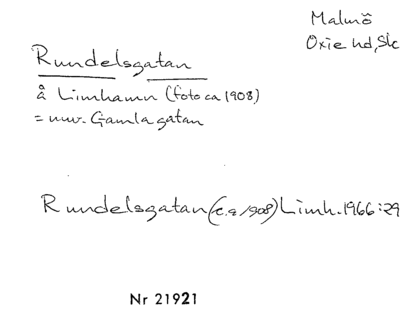 Malmö
Oxie hd, Sk
Rundelsgatan
å Limhamn (foto ca 1908)
= nuv. Gamla gatan
Rundelsgatan (c.a 1908) Limh. 1966:29
Nr 21921